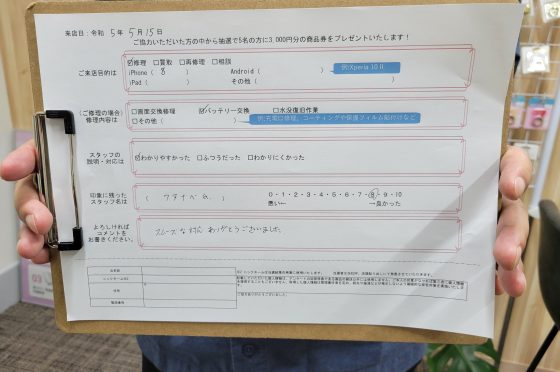 来店日：令和 5年 5月 15日
ご協力いただいた方の中から抽選で5名の方に3,000円分の商品券をプレゼントいたします！
ご来店目的は
☑修理 □買取 □再修理 □相談
iPhone（ 8 ） Android（ ） 例:Xperia 10 Ⅱ
iPad（ ） その他（ ）
（ご修理の場合）
修理内容は
□画面交換修理 ☑バッテリー交換 □水没復旧作業
□その他（ ） 例:充電口修理、コーティングや保護フィルム貼付けなど
スタッフの
説明・対応は
☑わかりやすかった □ふつうだった □わかりにくかった
印象に残った
スタッフ名は
（ ワタナベ ）
0・1・2・3・4・5・6・7・8・9・10
悪い← →良かった
よろしければ
コメントを
お書きください。
スムーズな対応 ありがとうございました。
お名前
ニックネーム可
住所
電話番号